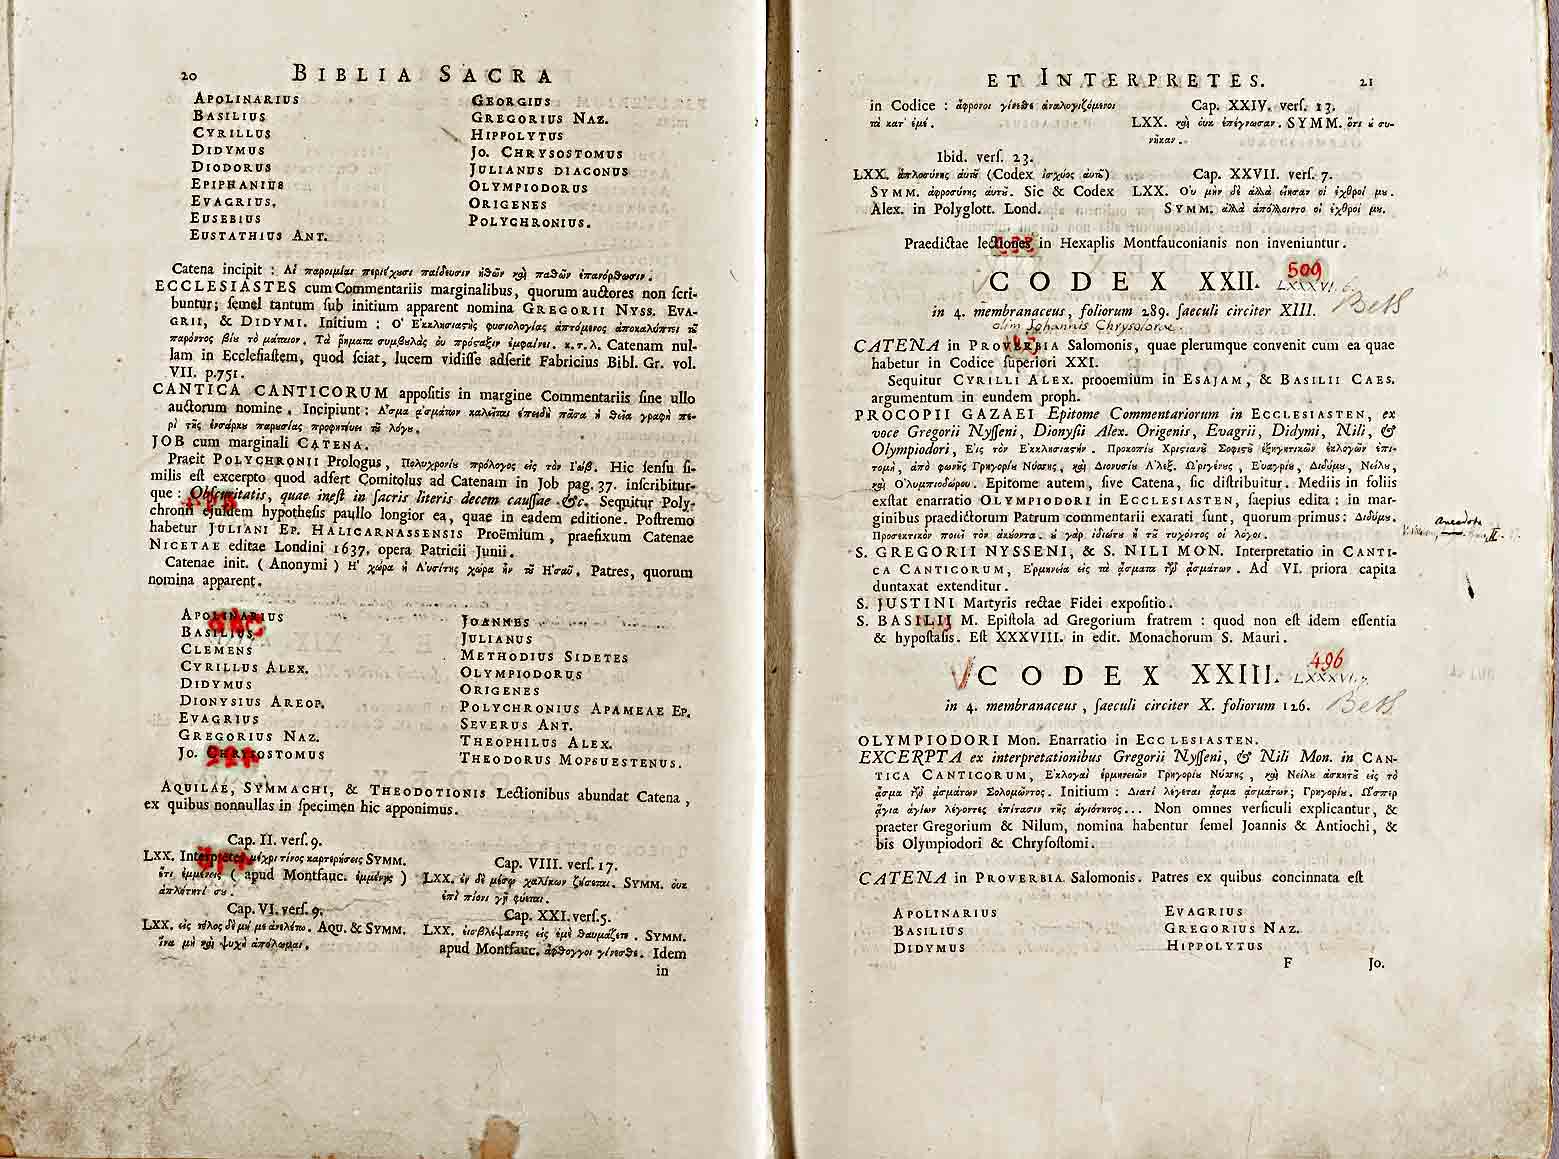 20 BIBLIA SACRA
APOLINARIUS
BASILIUS
CYRILLUS
DIDYMUS
DIODORUS
EPIPHANIUS
EVAGRIUS.
EUSEBIUS
EUSTATHIUS ANT.
GEORGIUS
GREGORIUS NAZ.
HIPPOLYTUS
JO. CHRYSOSTOMUS
JULIANUS DIACONUS
OLYMPIODORUS
ORIGENES
POLYCHRONIUS.
Catena incipit : Αἱ παροιμίαι περιέχουσι παίδευσιν ἠθῶν καὶ παθῶν ἐπανόρθωσιν.
ECCLESIASTES cum Commentariis marginalibus, quorum auctores non scri-
buntur; semel tantum sub initium apparent nomina GREGORII NYSS. EVA-
GRII, & DIDYMI. Initium : Ὁ Ἐκκλησιαστὴς φυσιολογίας ἁπτόμενος ἀποκαλύπτει τοῦ
παρόντος βίου τὸ μάταιον. Τὰ ῥήματα συμβουλὰς οὐ πρόσταξιν ἐμφαίνει. κ.τ.λ. Catenam nul-
lam in Ecclesiastem, quod sciat, lucem vidisse adserit Fabricius Bibl. Gr. vol.
VII. p.751.
CANTICA CANTICORUM appositis in margine Commentariis sine ullo
auctorum nomine. Incipiunt : Ἆσμα ᾀσμάτων καλεῖται ἐπειδὴ πᾶσα ἡ θεία γραφὴ πε-
ρὶ τῆς ἐνσάρκου παρουσίας προφητεύει τοῦ λόγου.
JOB cum marginali CATENA.
Praeit POLYCHRONII Prologus, Πολυχρονίου πρόλογος εἰς τὸν Ἰώβ. Hic sensu si-
milis est excerpto quod adfert Comitolus ad Catenam in Job pag. 37. inscribitur-
que : Obscuritatis, quae inest in sacris literis decem caussae &c. Sequitur Poly-
chronii ejusdem hypothesis paullo longior ea, quae in eadem editione. Postremo
habetur JULIANI EP. HALICARNASSENSIS Proëmium, praefixum Catenae
NICETAE editae Londini 1637. opera Patricii Junii.
Catenae init. ( Anonymi ) Ἡ χώρα ἡ Αὐσίτης χώρα ἦν τοῦ Ἡσαῦ. Patres, quorum
nomina apparent.
APOLINARIUS
BASILIUS
CLEMENS
CYRILLUS ALEX.
DIDYMUS
DIONYSIUS AREOP.
EVAGRIUS
GREGORIUS NAZ.
JO. CHRYSOSTOMUS
JOANNES
JULIANUS
METHODIUS SIDETES
OLYMPIODORUS
ORIGENES
POLYCHRONIUS APAMEAE EP.
SEVERUS ANT.
THEOPHILUS ALEX.
THEODORUS MOPSUESTENUS.
AQUILAE, SYMMACHI, & THEODOTIONIS Lectionibus abundat Catena,
ex quibus nonnullas in specimen hic apponimus.
Cap. II. vers. 9.
LXX. Interpretes μέχρι τίνος καρτερήσεις SYMM.
ἔτι ἐμμένεις ( apud Montfauc. ἐμμένης )
ἁπλότητί σου.
Cap. VI. vers. 9.
LXX. εἰς τέλος δὲ μή με ἀνελέτω. AQU. & SYMM.
ἵνα μὴ καὶ ψυχὴ ἀπόλωμαι.
Cap. VIII. vers. 17.
LXX. ἐν δὲ μέσῳ χαλίκων ζήσεται. SYMM. οὐκ
ἐπὶ πίονι γῇ φύεται.
Cap. XXI. vers. 5.
LXX. εἰσβλέψαντες εἰς ἐμὲ θαυμάζετε. SYMM.
apud Montfauc. ἄφθογγοι γίνεσθε. Idem
in
ET INTERPRETES. 21
in Codice : ἄφρονοι γίνεσθε ἀναλογιζόμενοι
τὰ κατ' ἐμέ.
Ibid. vers. 23.
LXX. ἁπλοσύνης αὐτοῦ (Codex ἰσχύος αὐτοῦ)
SYMM. ἀφροσύνης αὐτοῦ. Sic & Codex
Alex. in Polyglott. Lond.
Cap. XXIV. vers. 13.
LXX. καὶ οὐκ ἐπέγνωσαν. SYMM. ὅτι οὐ συ-
νῆκαν.
Cap. XXVII. vers. 7.
LXX. Οὐ μὴν δὲ ἀλλὰ εἴησαν οἱ ἐχθροί μου.
SYMM. ἀλλὰ ἀπόλλοιντο οἱ ἐχθροί μου.
Praedictae lectiones in Hexaplis Montfauconianis non inveniuntur.
CODEX XXII. 509
LXXXVI. 6.
in 4. membranaceus, foliorum 289. saeculi circiter XIII.
olim Johannis Chrysolorae.
CATENA in PROVERBIA Salomonis, quae plerumque convenit cum ea quae
habetur in Codice superiori XXI.
Sequitur CYRILLI ALEX. prooemium in ESAJAM, & BASILII CAES.
argumentum in eundem proph.
PROCOPII GAZAEI Epitome Commentariorum in ECCLESIASTEN, ex
voce Gregorii Nysseni, Dionysii Alex. Origenis, Evagrii, Didymi, Nili, &
Olympiodori, Εἰς τὸν Ἐκκλησιαστήν. Προκοπίου Χριστιανοῦ Σοφιστοῦ ἐξηγητικῶν ἐκλογῶν ἐπι-
τομὴ, ἀπὸ φωνῆς Γρηγορίου Νύσσης, καὶ Διονυσίου Ἀλεξ. Ὠριγένους, Εὐαγρίου, Διδύμου, Νείλου,
καὶ Ὀλυμπιοδώρου. Epitome autem, sive Catena, sic distribuitur. Mediis in foliis
exstat enarratio OLYMPIODORI in ECCLESIASTEN, saepius edita : in mar-
ginibus praedictorum Patrum commentarii exarati sunt, quorum primus: Διδύμου.
Προσεκτικὸν ποιεῖ τὸν ἀκούοντα. οὐ γὰρ ἰδιώτου ἢ τοῦ τυχόντος οἱ λόγοι.
S. GREGORII NYSSENI, & S. NILI MON. Interpretatio in CANTI-
CA CANTICORUM, Ἑρμηνεία εἰς τὰ ᾄσματα τῶν ᾀσμάτων. Ad VI. priora capita
duntaxat extenditur.
S. JUSTINI Martyris rectae Fidei expositio.
S. BASILII M. Epistola ad Gregorium fratrem : quod non est idem essentia
& hypostasis. Est XXXVIII. in edit. Monachorum S. Mauri.
CODEX XXIII. 496
LXXXVI. 7.
in 4. membranaceus, saeculi circiter X. foliorum 126.
OLYMPIODORI Mon. Enarratio in ECCLESIASTEN.
EXCERPTA ex interpretationibus Gregorii Nysseni, & Nili Mon. in CAN-
TICA CANTICORUM, Ἐκλογαὶ ἑρμηνειῶν Γρηγορίου Νύσσης, καὶ Νείλου ἀσκητοῦ εἰς τὸ
ᾆσμα τῶν ᾀσμάτων Σολομῶντος. Initium : Διατί λέγεται ᾆσμα ᾀσμάτων; Γρηγορίου. Ὥσπερ
ἅγια ἁγίων λέγοντες ἐπίτασιν τῆς ἁγιότητος... Non omnes versiculi explicantur, &
praeter Gregorium & Nilum, nomina habentur semel Joannis & Antiochi, &
bis Olympiodori & Chrysostomi.
CATENA in PROVERBIA Salomonis. Patres ex quibus concinnata est
APOLINARIUS
BASILIUS
DIDYMUS
EVAGRIUS
GREGORIUS NAZ.
HIPPOLYTUS
F Jo.